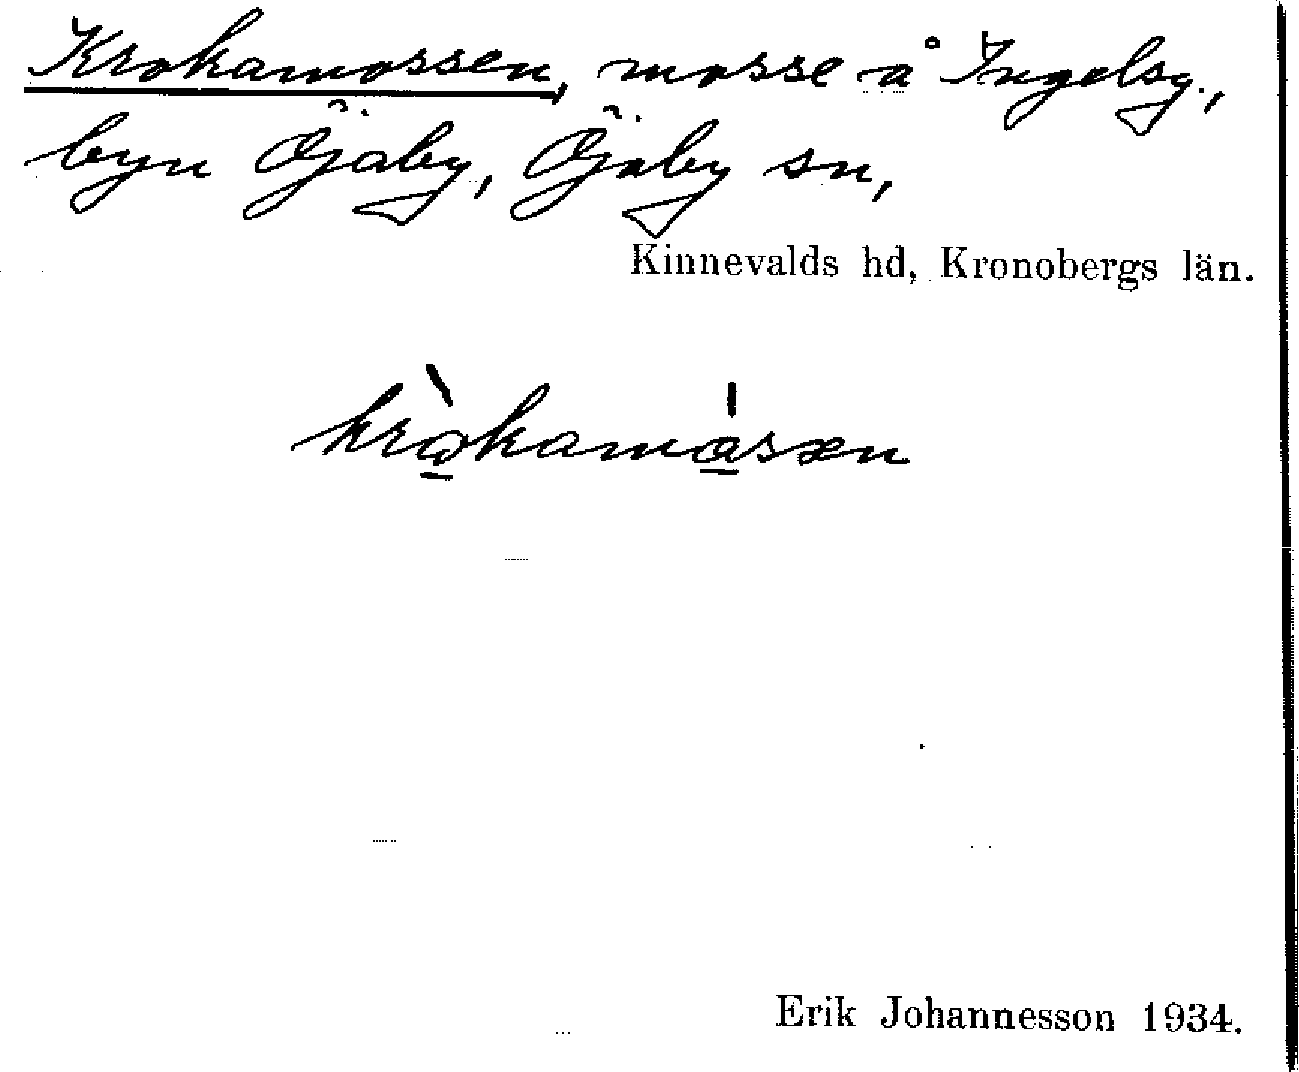 Krokamossen, mosse å Ingelsg.,
byn Öjaby, Öjaby sn,
Kinnevalds hd, Kronobergs län.
kròkamåsen
Erik Johannesson 1934.